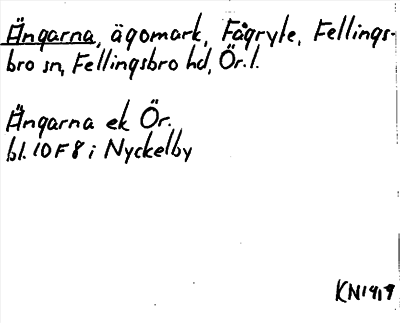 Ängarna, ägomark, Fågryte, Fellings-
bro sn, Fellingsbro hd, Ör. l.
Ängarna ek Ör.
bl. 10 F 8 i Nyckelby